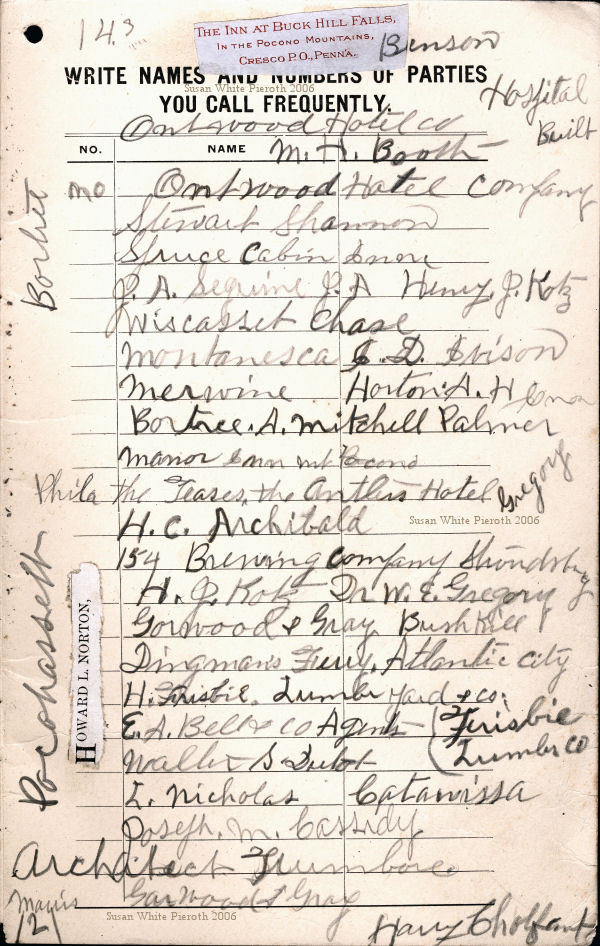 14.3
THE INN AT BUCK HILL FALLS,
IN THE POCONO MOUNTAINS,
CRESCO P.O., PENN'A.
Benson
WRITE NAMES AND NUMBERS OF PARTIES
Susan White Pieroth 2006
YOU CALL FREQUENTLY.
Hospital
Built
Ontwood Hotel co
NO. NAME M. H. Booth
no Ontwood Hotel Company
Stewart Shannon
Spruce Cabin Inn
J. A. Seguine J. A Henry, J. Kotz
Wiscasset Chase
Montanesca J. D. Ivison
Merwine Horton A. H
Bortree. A. Mitchell Palmer
Manor Inn mt Pocono
Phila the Teases, the Antlers Hotel
Gregory
H. C. Archibald
Susan White Pieroth 2006
154 Brewing Company
H. J. Kotz Dr W. E. Gregory
Gorwood & Gray Bushkill
Dingmans Ferry, Atlantic city
H. Frisbie. Lumber yard & co.
E. A. Bell & co Agents (Frisbie
Lumber co
Walter S
L. Nicholas Catawissa
Joseph. M. Cassidy
Architect Trumbore
Garwood & Gray
12
Susan White Pieroth 2006
Harry
HOWARD L. NORTON,
Pocohassett